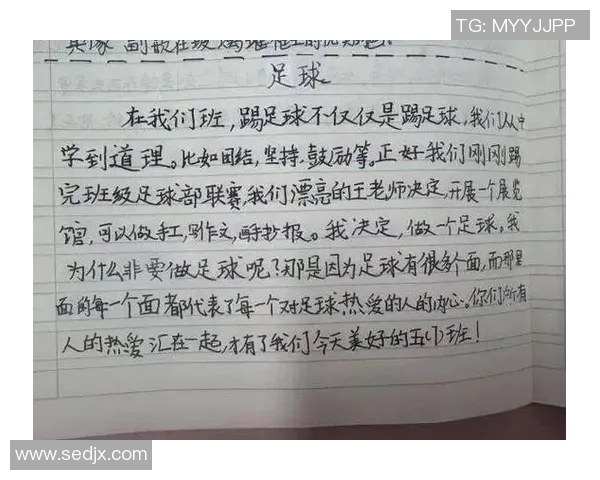 TG: MYYJJPP
足球
在我们班，踢足球不仅仅是踢足球，我们从中
学到道理。比如团结，坚持，鼓励等。正好我们刚刚踢
完班级足球部联赛，我们漂亮的王老师决定，开展一个展览
馆，可以做手工，写作文，画手抄报。我决定，做一个足球。我
为什么非要做足球呢？那是因为足球有很多个面，而那里
面的每一个面都代表了每一个对足球热爱的人的内心。你们所有
人的热爱汇在一起，才有了我们今天美好的五(1)班！
www.sedjx.com